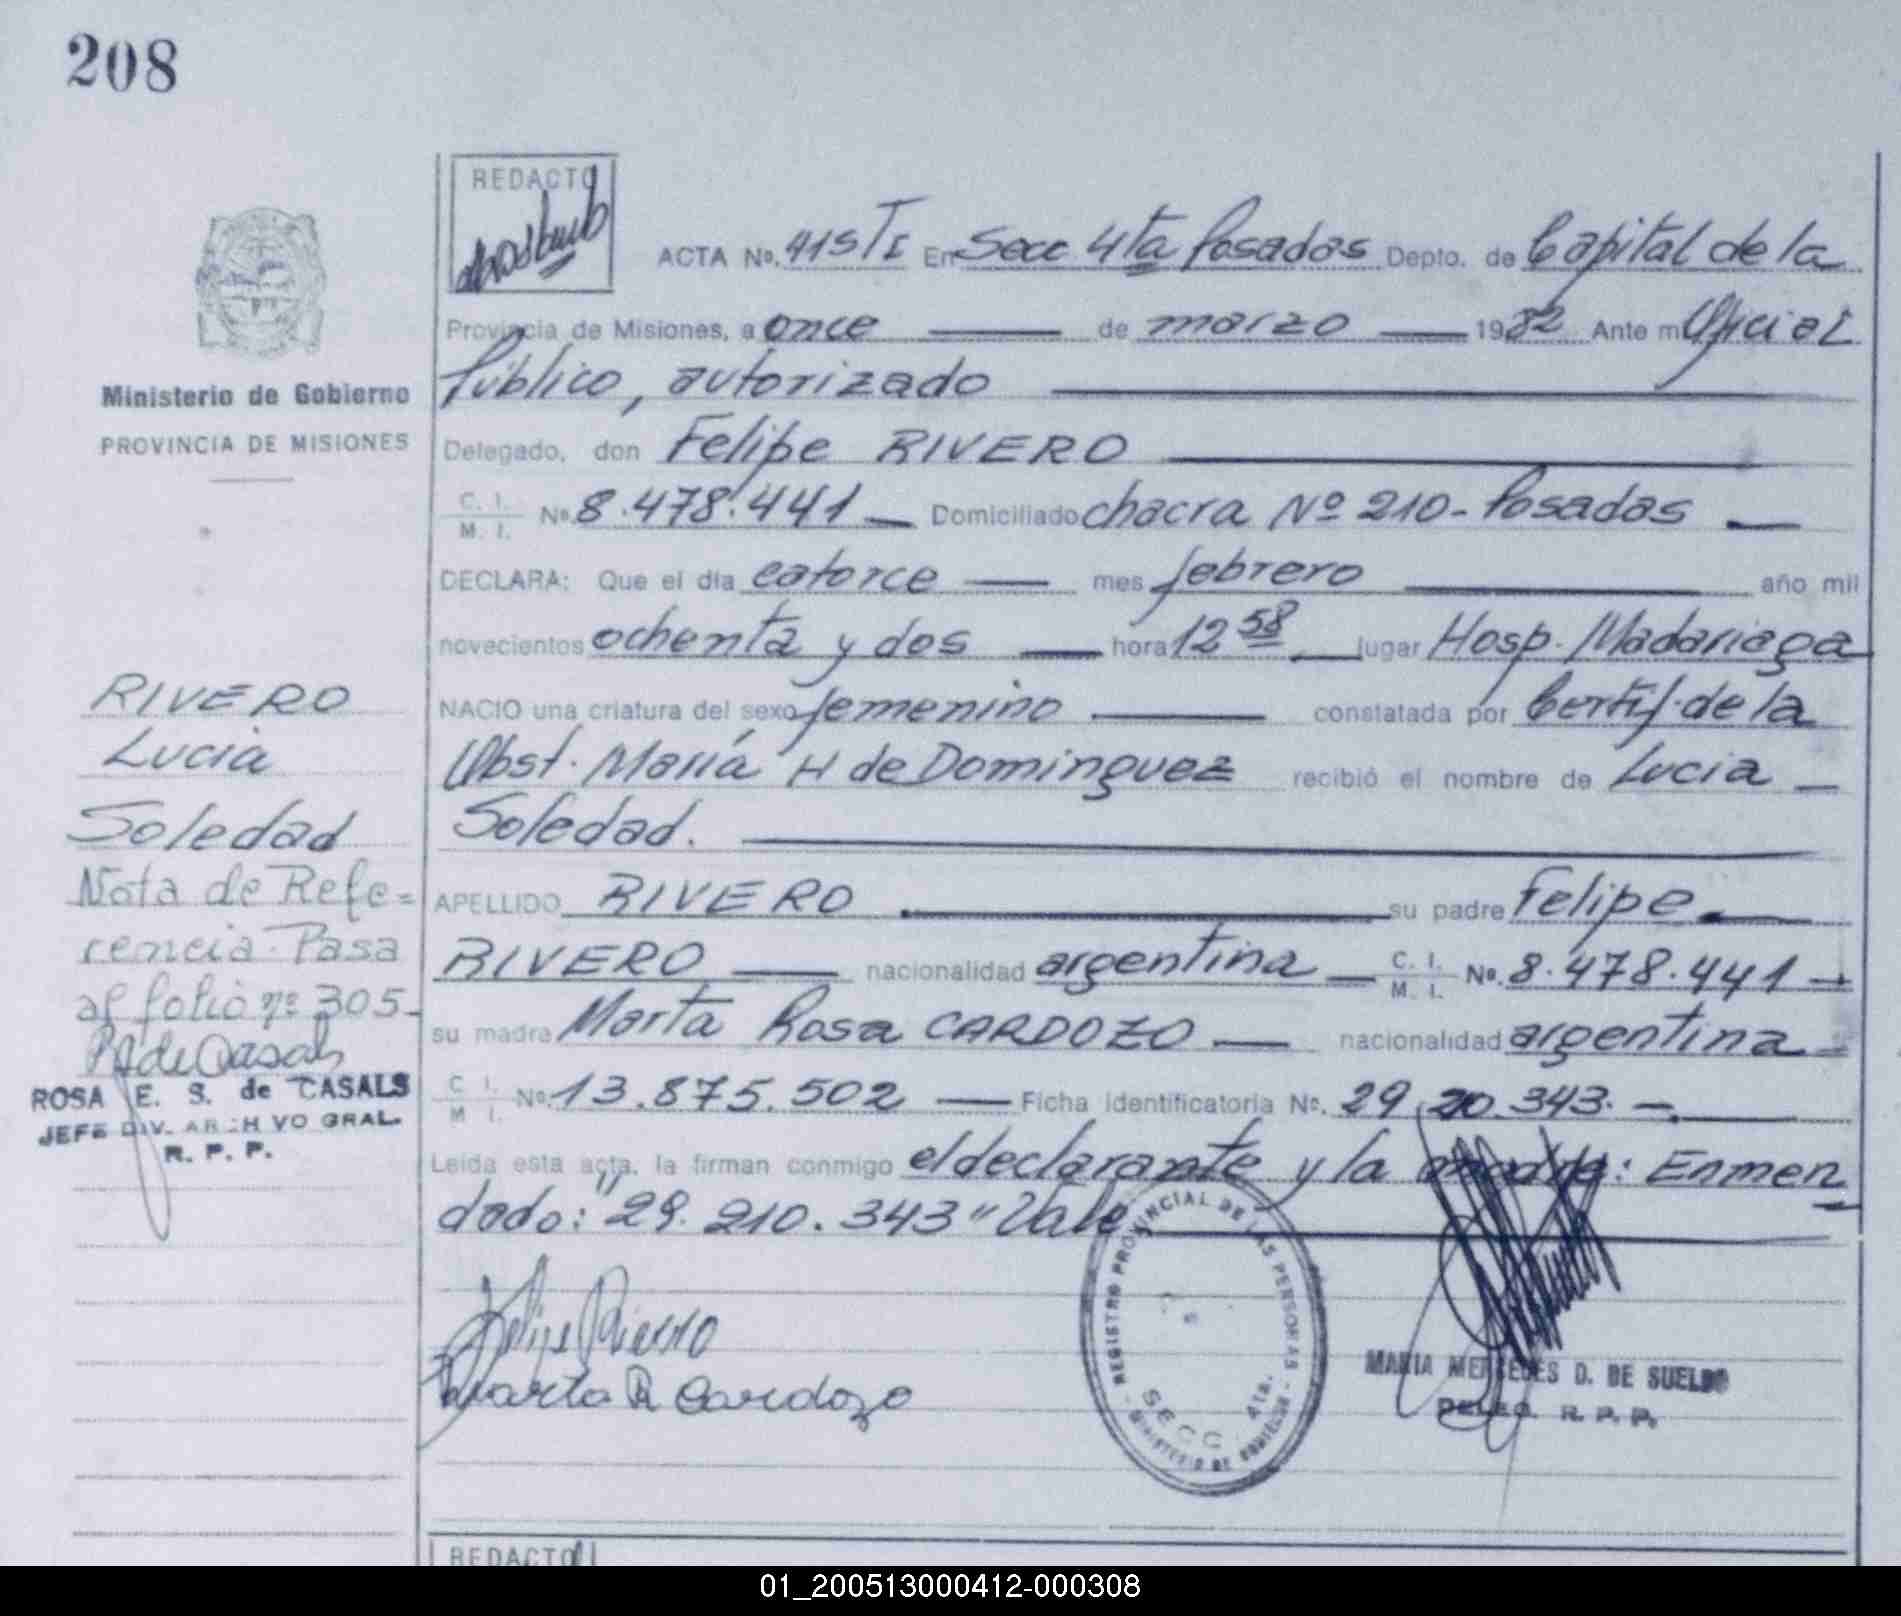 208
REDACTO
ACTA No. 415 T I En Secc 4ta Posadas Depto. de Capital de la
Provincia de Misiones, a once de marzo 1982 Ante mi Oficial
Público, autorizado
Ministerio de Gobierno
PROVINCIA DE MISIONES
Delegado, don Felipe RIVERO
C. I.
M. I. No. 8.478.441 Domiciliado chacra Nº 210 - Posadas
DECLARA: Que el día catorce mes febrero año mil
novecientos ochenta y dos hora 12 58 lugar Hosp. Madariaga
NACIO una criatura del sexo femenino constatada por Certif. de la
Obst. María H de Dominguez recibió el nombre de Lucia
Soledad.
RIVERO
Lucia
Soledad
Nota de Refe=
rencia. Pasa
al folio nº 305-
R de Casals
ROSA E. S. de CASALS
JEFE DIV. ARCHIVO GRAL.
R. P. P.
APELLIDO RIVERO su padre Felipe
RIVERO nacionalidad argentina C. I.
M. I. No. 8.478.441
su madre Marta Rosa CARDOZO nacionalidad argentina
C. I.
M. I. No. 13.875.502 Ficha Identificatoria No. 29 210 343.
Leída esta acta, la firman conmigo el declarante y la madre: Enmen
dado: "29.210.343" Vale
Felipe Rivero
Marta R Cardozo
REGISTRO PROVINCIAL DE LAS PERSONAS
SECC. 4ta.
MINISTERIO DE GOBIERNO
MARIA MERCEDES D. DE SUELDO
DELEG. R. P. P.
REDACTO
01_200513000412-000308